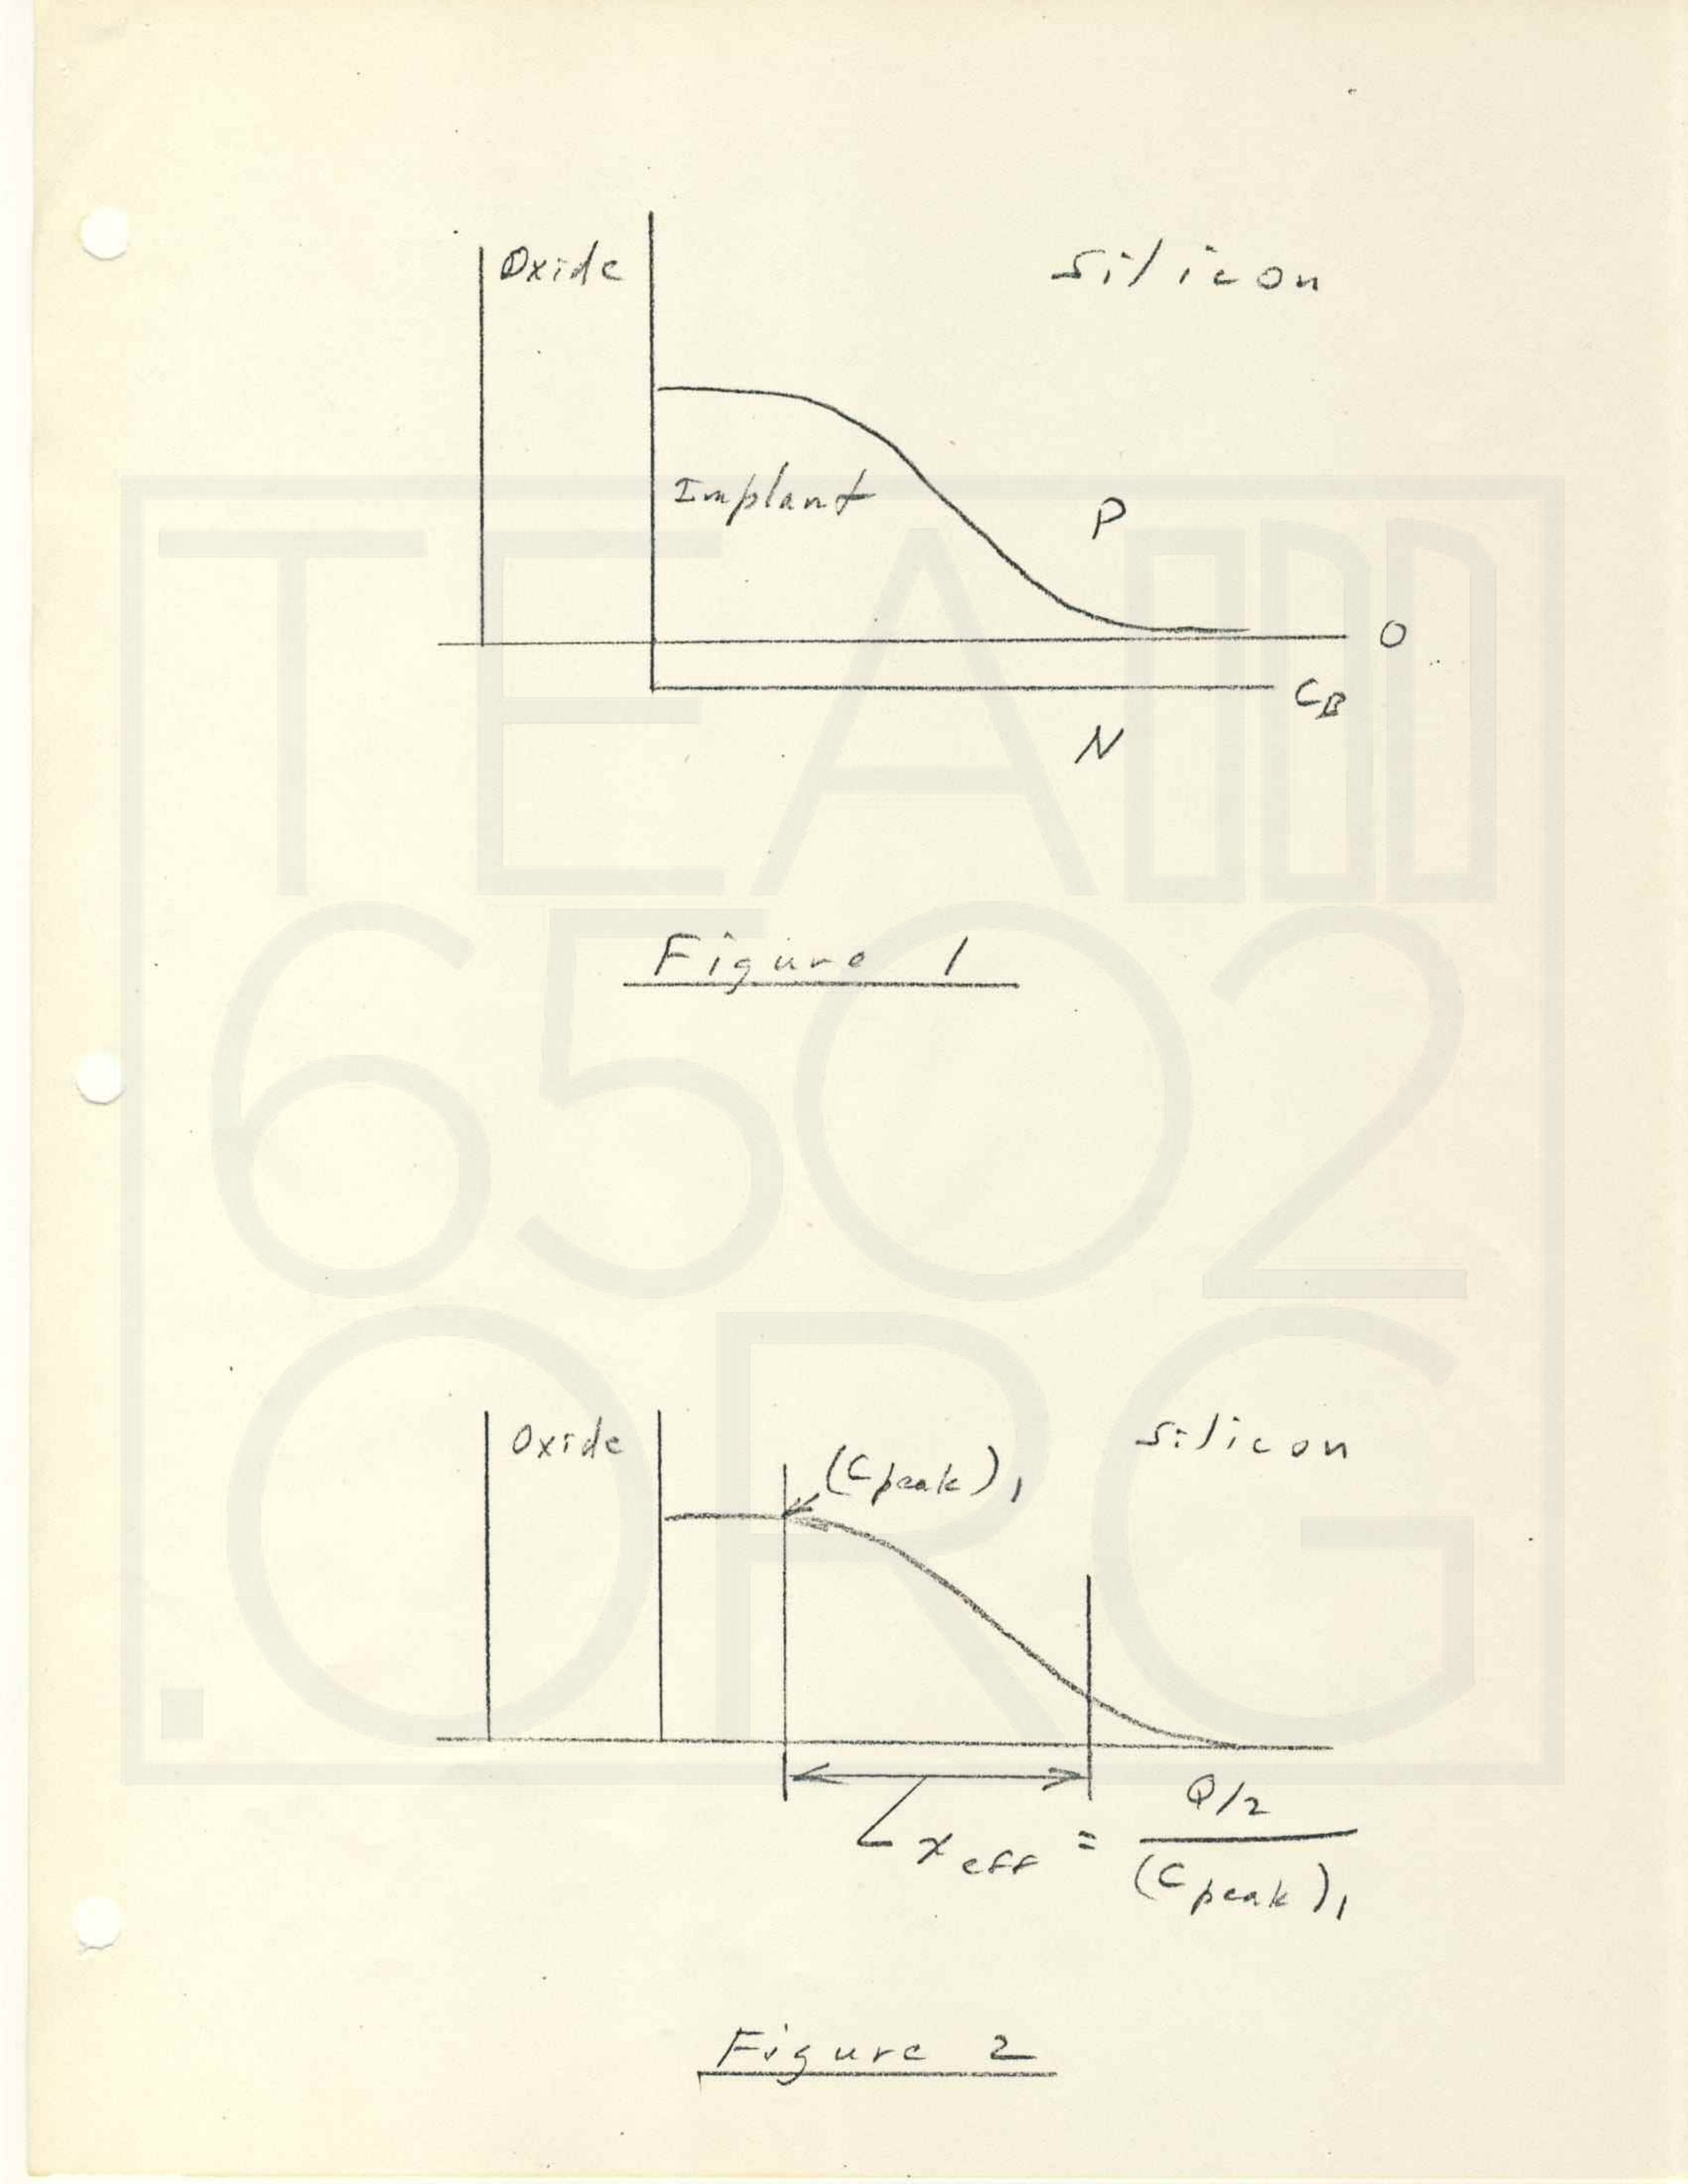 Oxide Silicon
Implant
P
O
C_B
N
Figure 1
Oxide Silicon
(C_peak)_1
x_eff = Q/2 / (C_peak)_1
Figure 2
TEAM
6502
.ORG